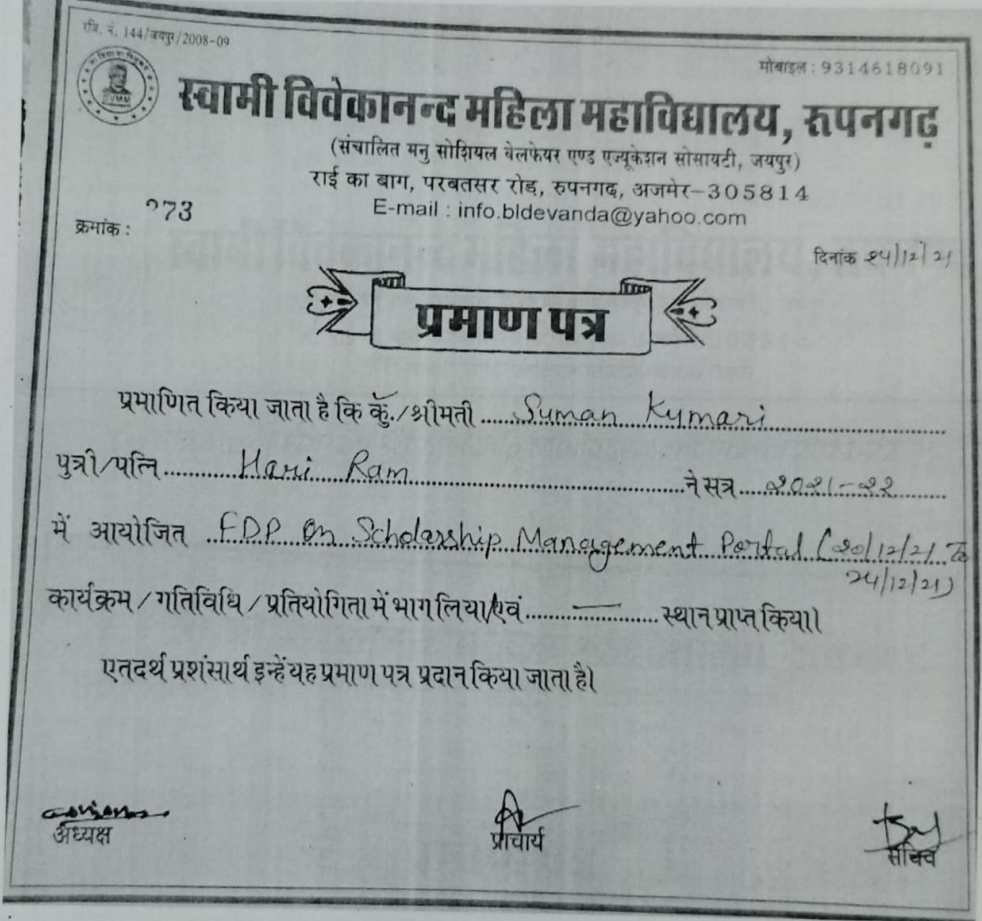 रजि. नं. 144/जयपुर/2008-09
मोबाइल : 9314618091
स्वामी विवेकानन्द महिला महाविद्यालय, रूपनगढ़
(संचालित मनु सोशियल वेलफेयर एण्ड एज्यूकेशन सोसायटी, जयपुर)
राई का बाग, परबतसर रोड, रुपनगढ, अजमेर-305814
E-mail : info.bldevanda@yahoo.com
क्रमांक : 273
दिनांक २४/12/21
प्रमाण पत्र
प्रमाणित किया जाता है कि कुॅ./श्रीमती Suman Kumari
पुत्री/पत्नि Hari Ram ने सत्र २०२१-२२
में आयोजित FDP On Scholarship Management Portal (२०/12/21 To
24/12/21)
कार्यक्रम / गतिविधि / प्रतियोगिता में भाग लिया/एवं — स्थान प्राप्त किया।
एतदर्थ प्रशंसार्थ इन्हें यह प्रमाण पत्र प्रदान किया जाता है।
अध्यक्ष
प्राचार्य
सचिव